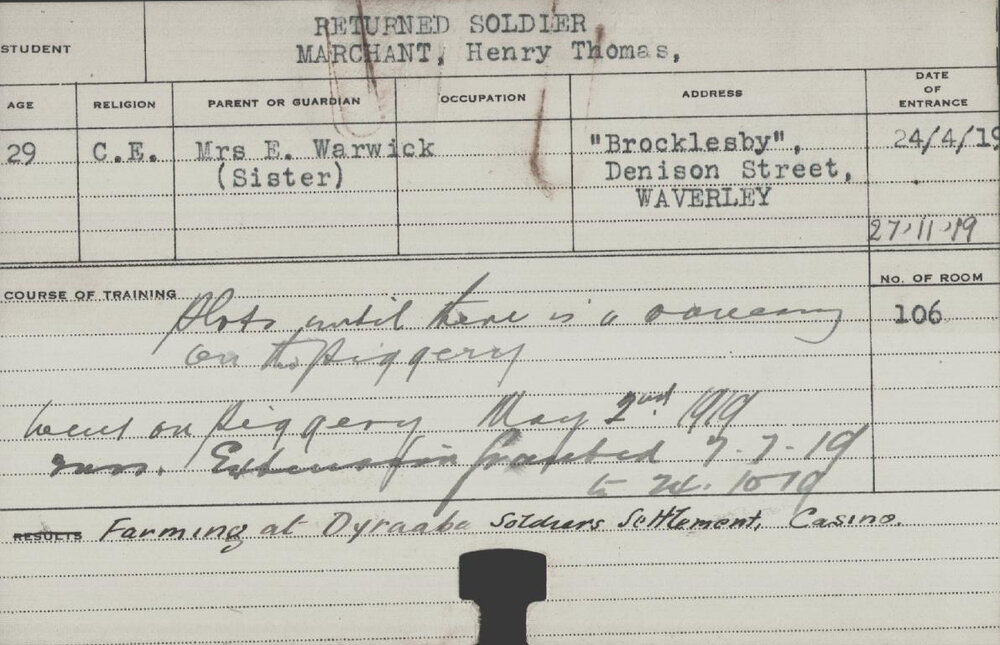 RETURNED SOLDIER
STUDENT MARCHANT, Henry Thomas,
AGE RELIGION PARENT OR GUARDIAN OCCUPATION ADDRESS DATE OF ENTRANCE
29 C.E. Mrs E. Warwick "Brocklesby", 24/4/19
(Sister) Denison Street,
WAVERLEY
27.11.19
COURSE OF TRAINING No. OF ROOM
Plots until there is a vacancy 106
on the Piggery
Went on Piggery May 2nd 1919
Extension Granted 7-7-19
to 24.10 19
RESULTS Farming at Dyraaba Soldiers Settlement, Casino.